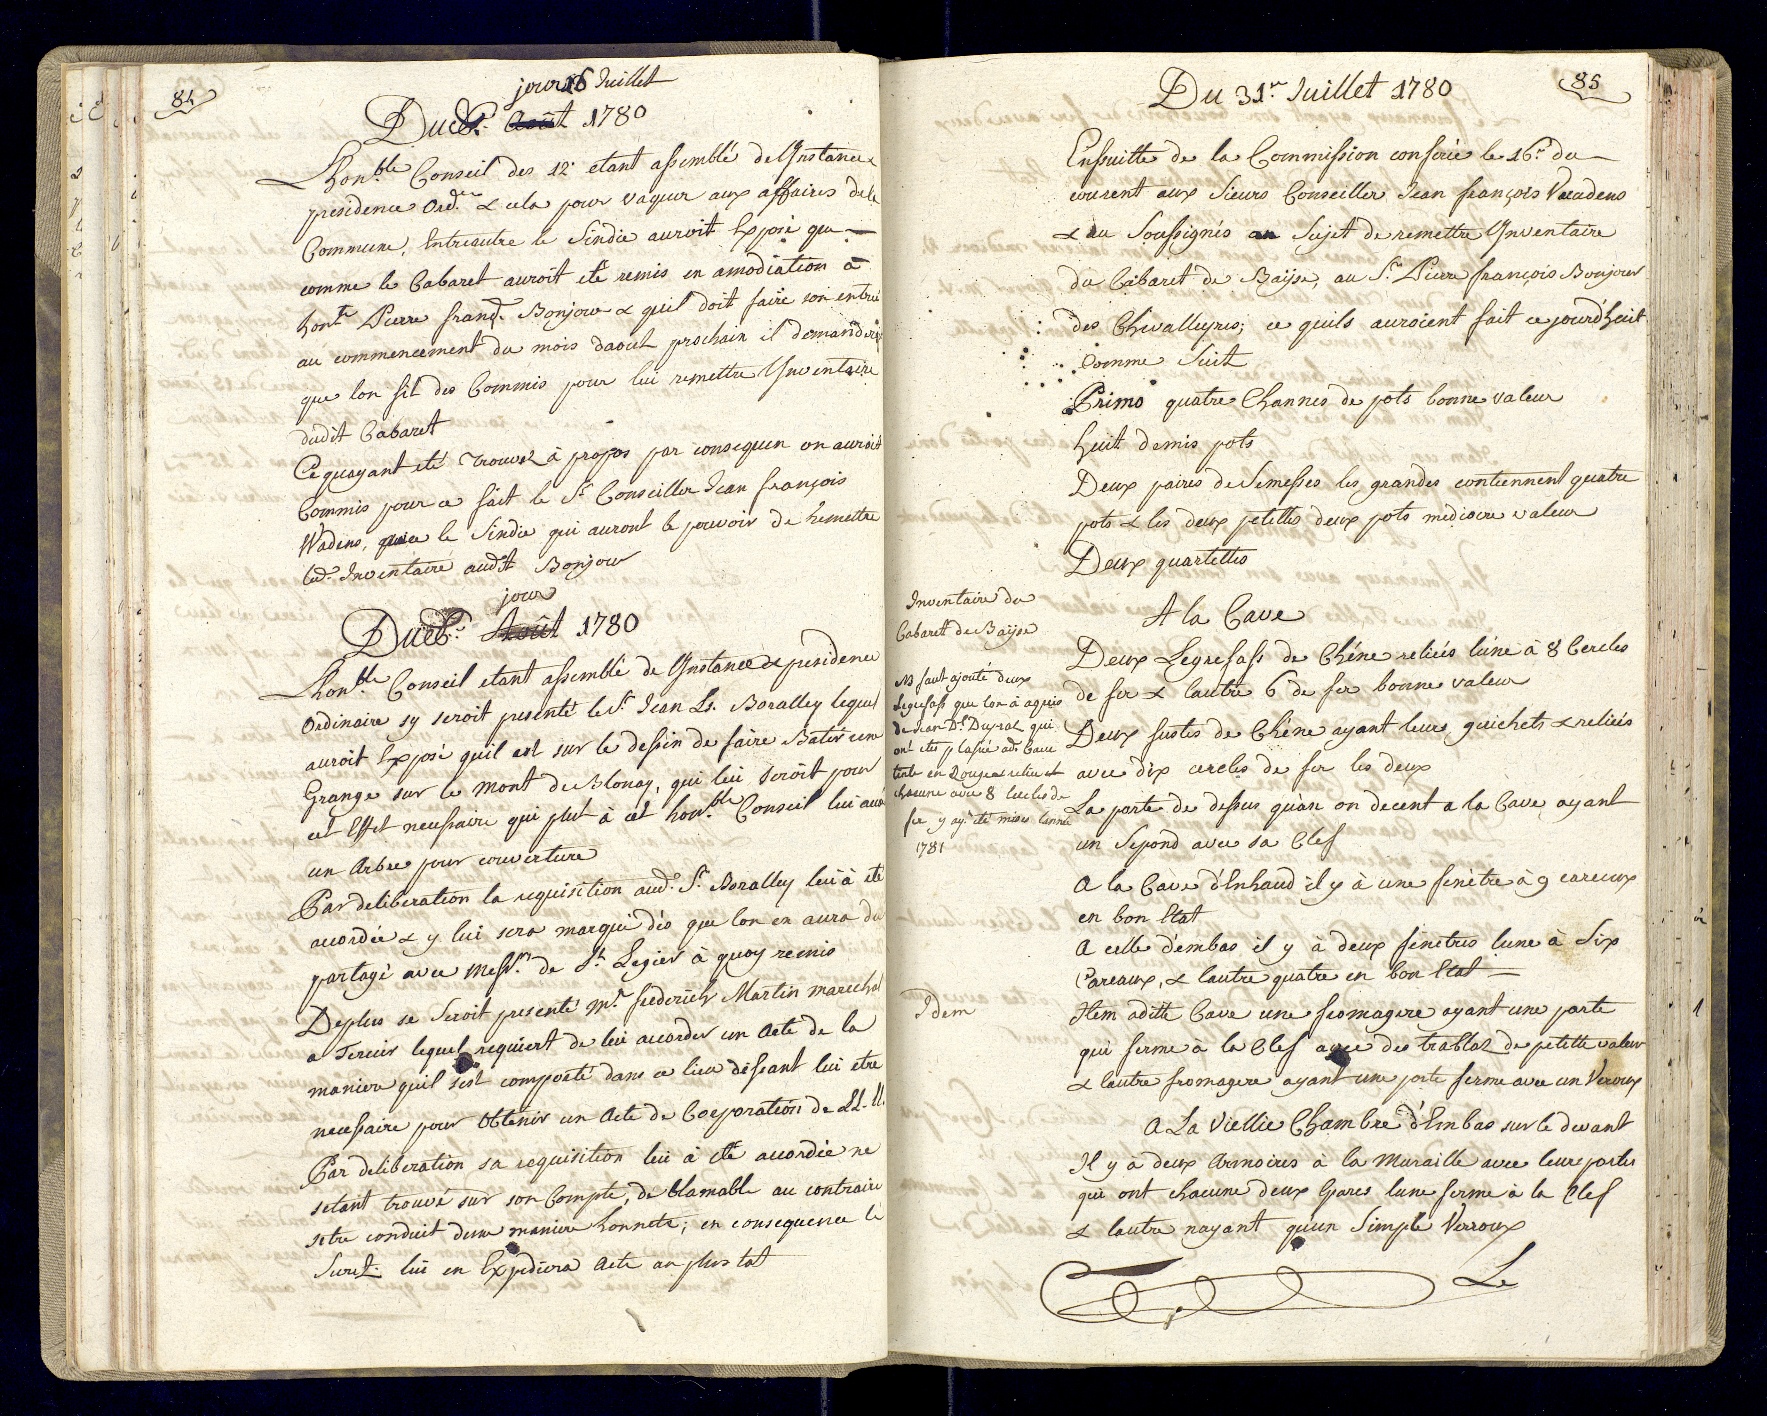 84
jour 16 Juillet
Dud.t Août 1780
Lhon.ble Conseil des 12 etant assemblé de lJnstance &
presidence Ord.re & cela pour vaquer aux affaires de la
Commune, Entreautre le Sindic auroit Exposé que
comme le Cabaret auroit eté remis en amodiation à
hon.te Pierre franç.s Bonjour & quil doit faire son entrée
au commencement du mois daout prochain il demanderoit
que lon fit des Commis pour lui remettre lJnventaire
dudit Cabaret
Ce quayant eté Trouvez à propos par consequen on auroit
Commis pour ce fait le S.r Conseiller Jean françois
Wadens, avec le Sindic qui auront le pouvoir de Remettre
led.t Inventaire audit Bonjour
jour
Dud.t Août 1780
Lhon.ble Conseil etant assemblé de lJnstance & presidence
Ordinaire sy seroit presenté le S.r Jean Ls. Boralley lequel
auroit Exposé quil est sur le dessin de faire Batir une
Grange sur le Mont de Blonay, qui lui seroit pour
cet Effet necessaire qui plut à cet hon.ble Conseil lui acor
un Arbre pour couverture
Par deliberation la requisition aud.t S.r Boralley lui à eté
accordée & y lui sera marqué dés que lon en aura du
partagé avec Mess.rs de S.t Legier à quoy remis
Deplus se Seroit presenté M.r frederich Martin marechal
a Tercier lequel requiert de lui accorder un Acte de la
maniere quil sest comporté dans ce lieu dissant lui etre
necessaire pour Obtenir un Acte de Corporation de LL. EE.
Par deliberation sa requisition lui à eté accordée ne
setant trouvé sur son Compte, de blamable au contraire
setre conduit dune maniere honnete; en consequence le
Secret. lui en Expediera Acte au plus tot
85
Du 31.er Juillet 1780
Ensuitte de la Commission conferée le 16.e du
courent aux Sieurs Conseiller Jean françois Vuadens
& au Soussignés au Sujet de remettre lJnventaire
du Cabaret de Baÿse, au S.r Pierre françois Bonjour
des Chevalleyres; ce quils auroient fait ce jourdhuit
comme Suit
Primo quatre Channes de pots bonne valeur
huit demis pots
Deux paires de Semesses les grandes contiennent quatre
pots & les deux petittes deux pots mediocre valeur
Deux quartettes
Inventaire du
Cabaret de Baÿse
A la Cave
Deux Legrefass de Chéne reliées lune à 8 Cercles
de fer & lautre 6 de fer bonne valeur
Deux fustes de Chéne ayant leurs guichets & reliées
avec dix cercles de fer les deux
La porte de dessus quan on decent a la Cave ayant
un Sepond avec sa Clef
NB faut ajouté deux
Legrefass que lon à aquis
de Jean D.l Dupraz qui
ont etes plassé aud.t Cave
teinte en Rouge & reliée et
chacune avec 8 Cercles de
fer y ay.t été mises lannée
1781
A la Cave d'Enhaud il y à une fenetre à 9 careaux
en bon Etat
A celle dembas il y à deux fenetres lune à Six
Careaux, & lautre quatre en bon Etat
Idem
Item aditte Cave une fromagere ayant une porte
qui ferme à la Clef avec des trablaz de petitte valeur
& lautre fromagere ayant une porte ferme avec un Veroux
A La Viellie Chambre d'Embas sur le devant
Il y à deux Armoires à la Muraille avec leur portes
qui ont chacune deux Epares lune ferme à la Clef
& lautre nayant quun Simple Verroux
Le